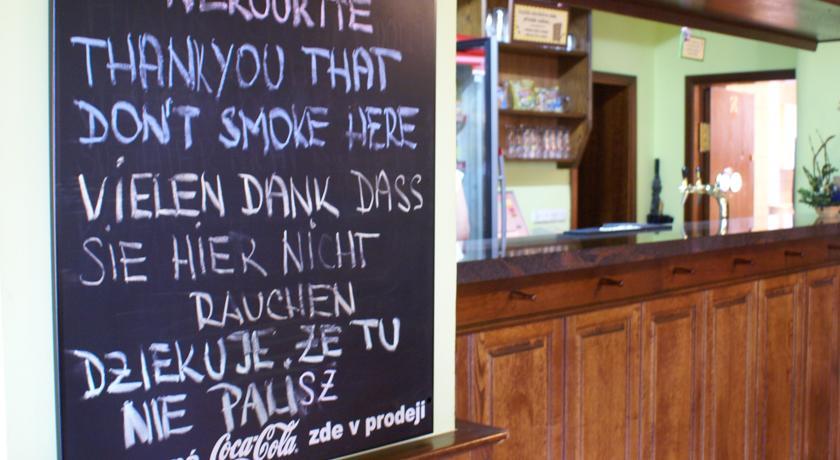 NEKOUŘÍTE
THANKYOU THAT
DON'T SMOKE HERE
VIELEN DANK DASS
SIE HIER NICHT
RAUCHEN
DZIEKUJE, ŻE TU
NIE PALISZ
Coca-Cola zde v prodeji